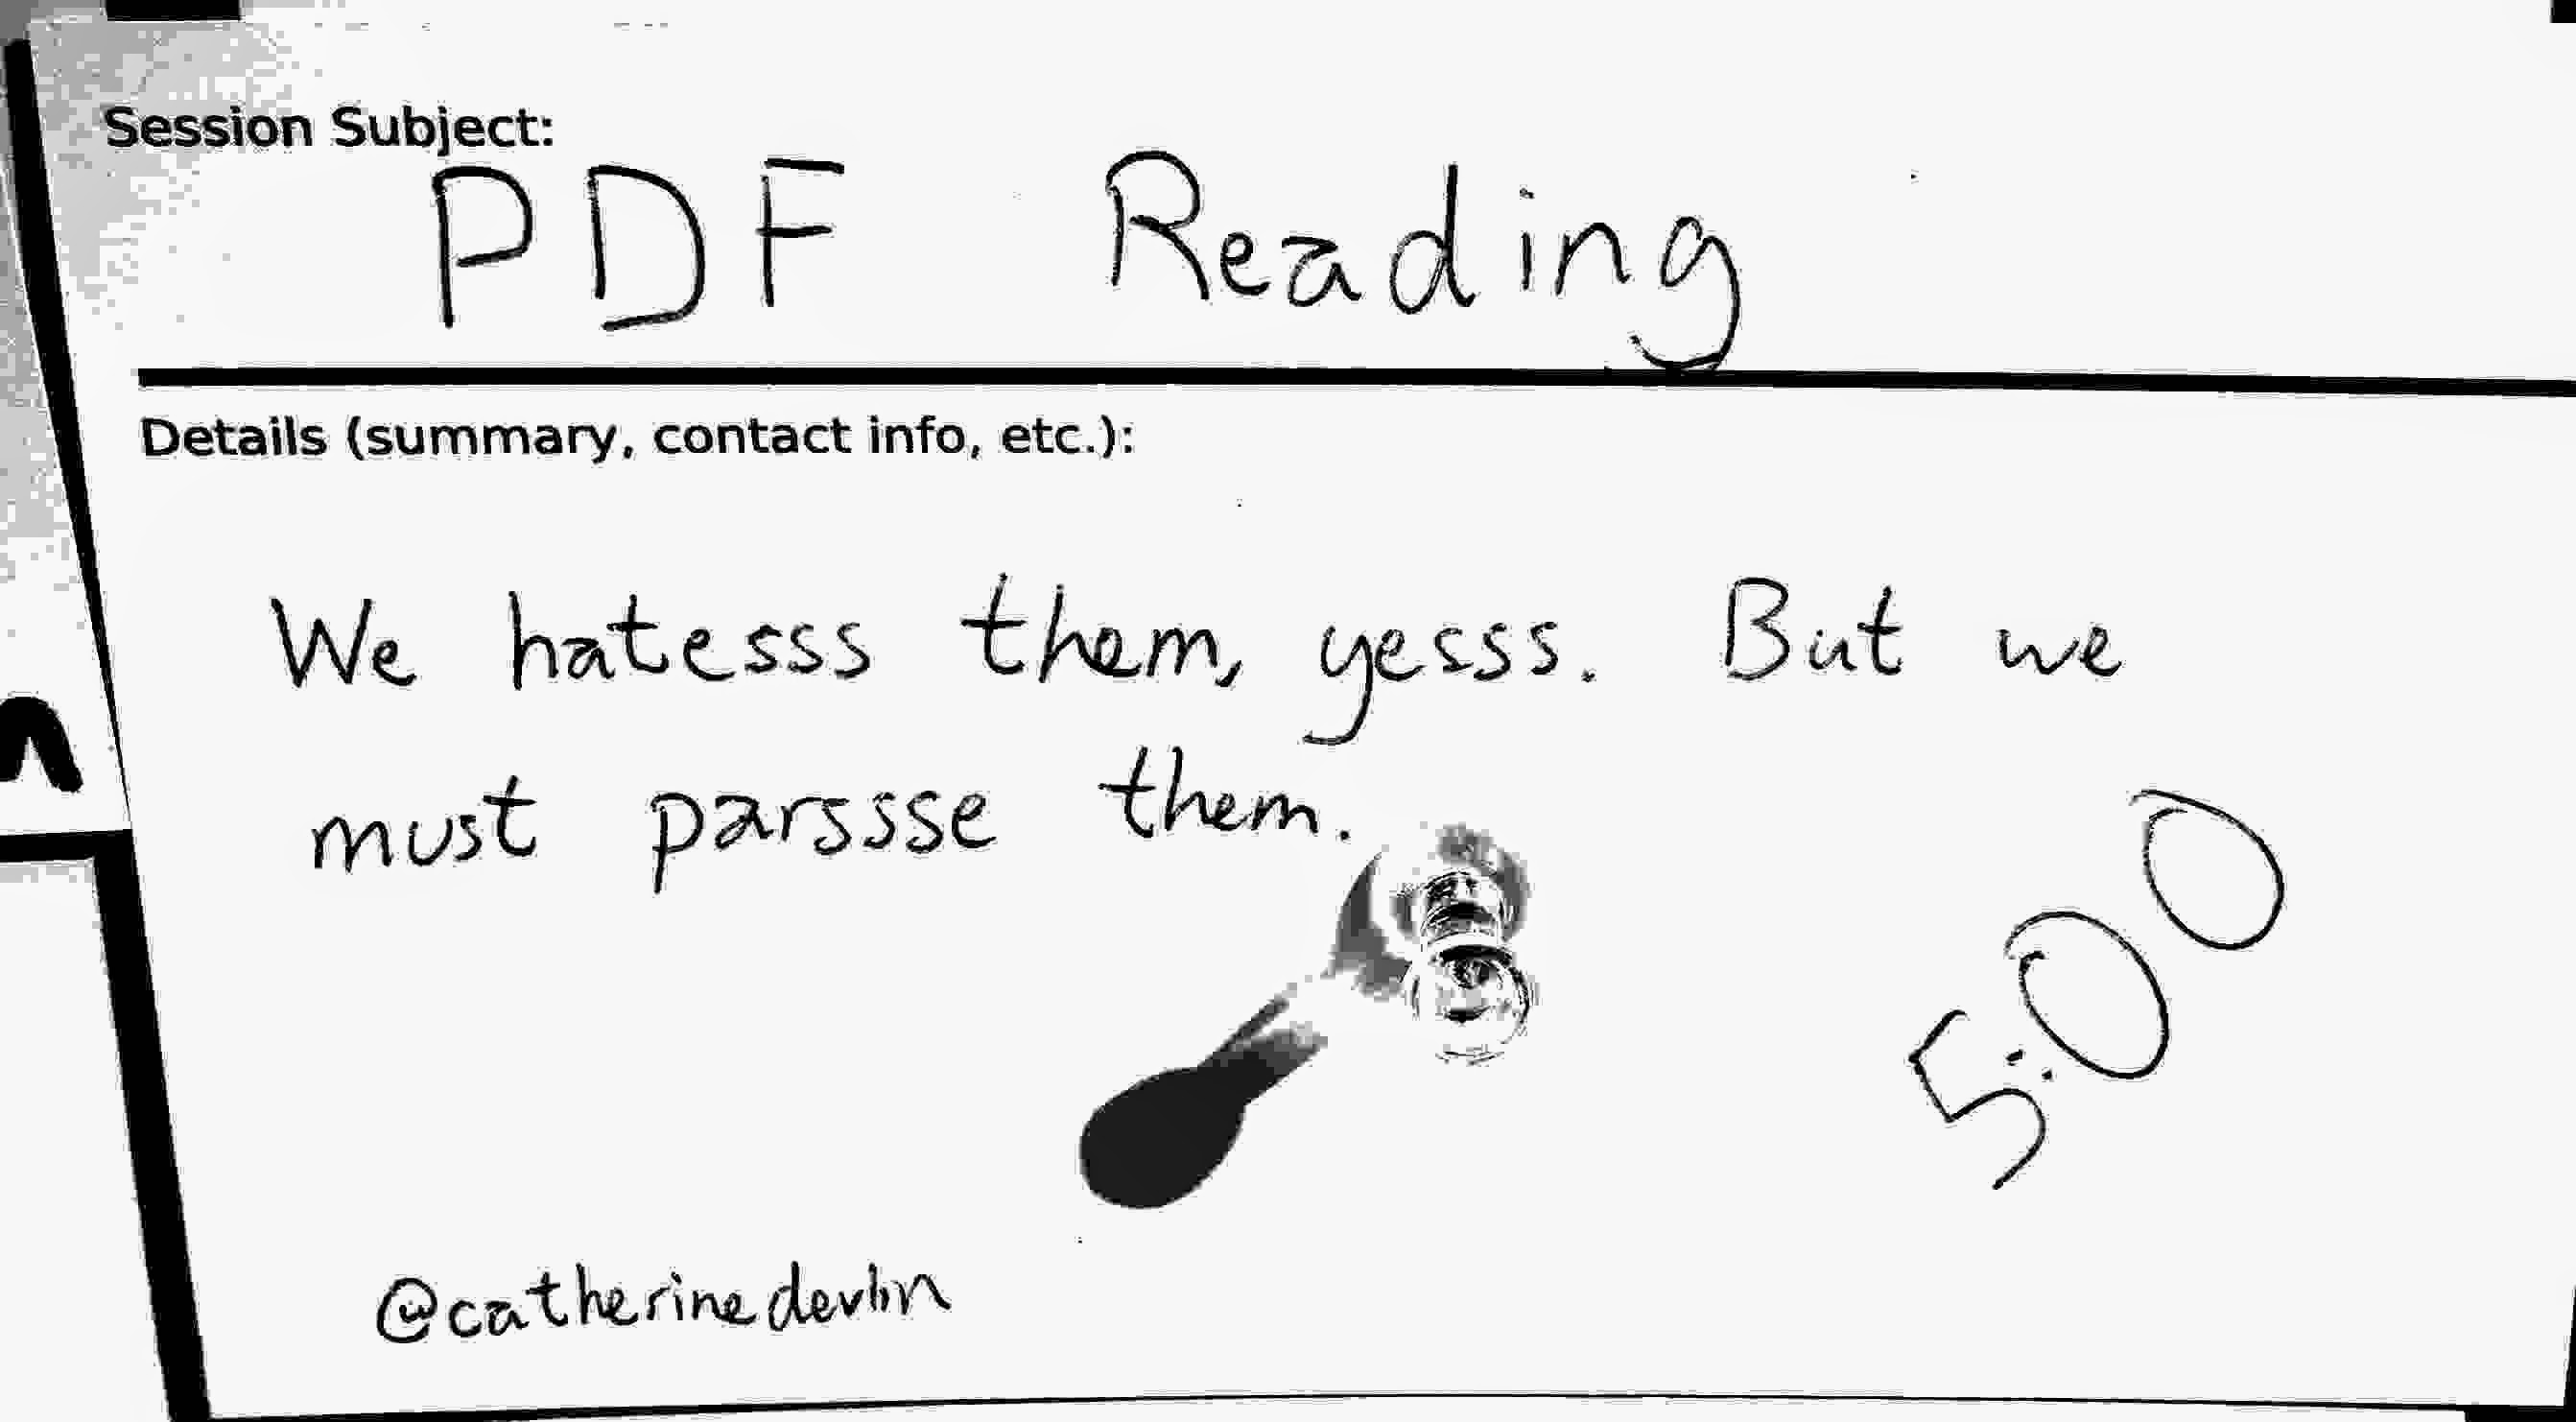 Session Subject:
PDF Reading
Details (summary, contact info, etc.):
We hatesss them, yesss. But we
must parssse them.
5:00
@catherinedevlin